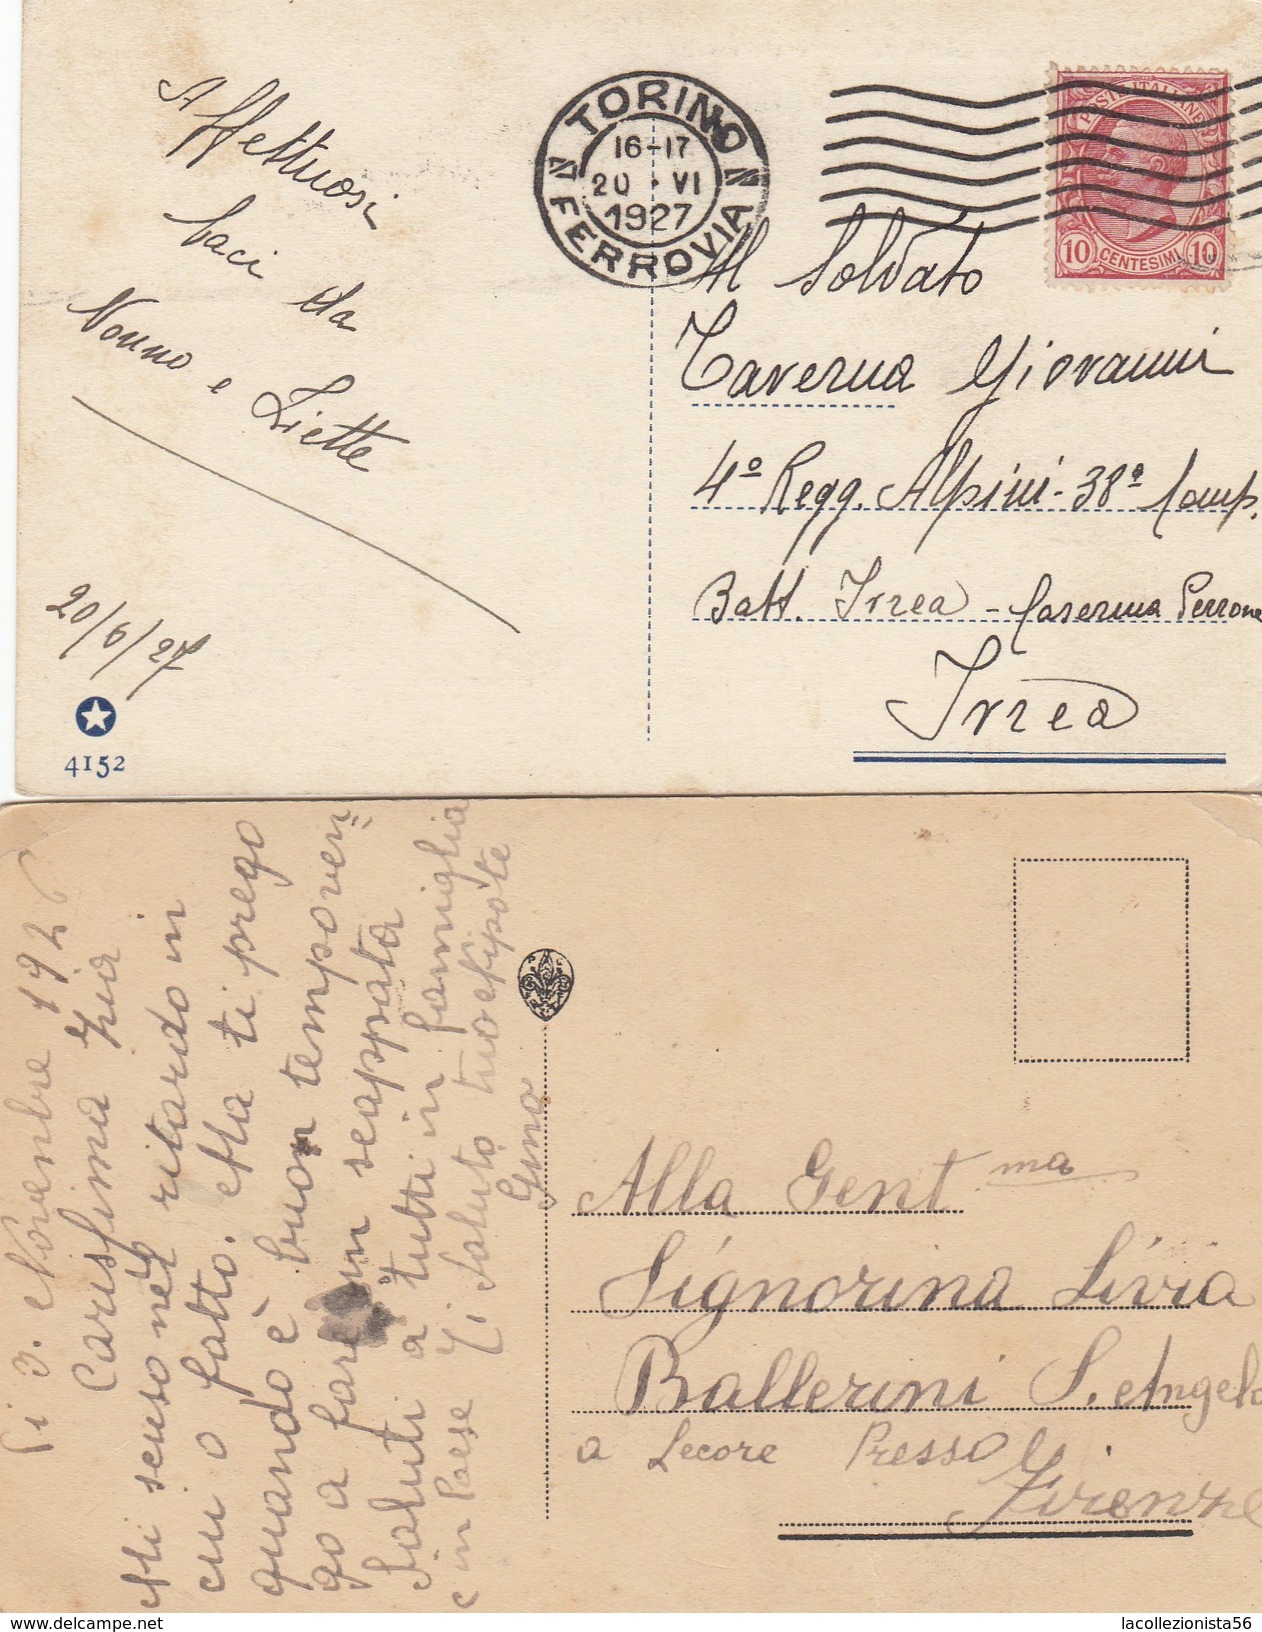 Affettuosi
baci da
Nonno e Liette
20/6/27
4152
TORINO
16-17
20 · VI
1927
FERROVIA
POSTE ITALIANE
10 CENTESIMI 10
Al Soldato
Taverna Giovanni
4º Regg. Alpini - 38ª Comp.
Batt. Ivrea - Caserma Perrone
Ivrea
li 3. Novenbre 1926
Carisfima Zia
Mi scuso nel ritardo in
cui o fatto. Ma ti prego
quando è buon tempo ven=
go a fare un scappata
Saluti a tutti in famiglia
e in Paese Ti Saluto tuo Nipote
Gino
Alla Gent ma
Signorina Livia
Ballerini S. Angelo
a Lecore Presso
Firenze
lacollezionista56